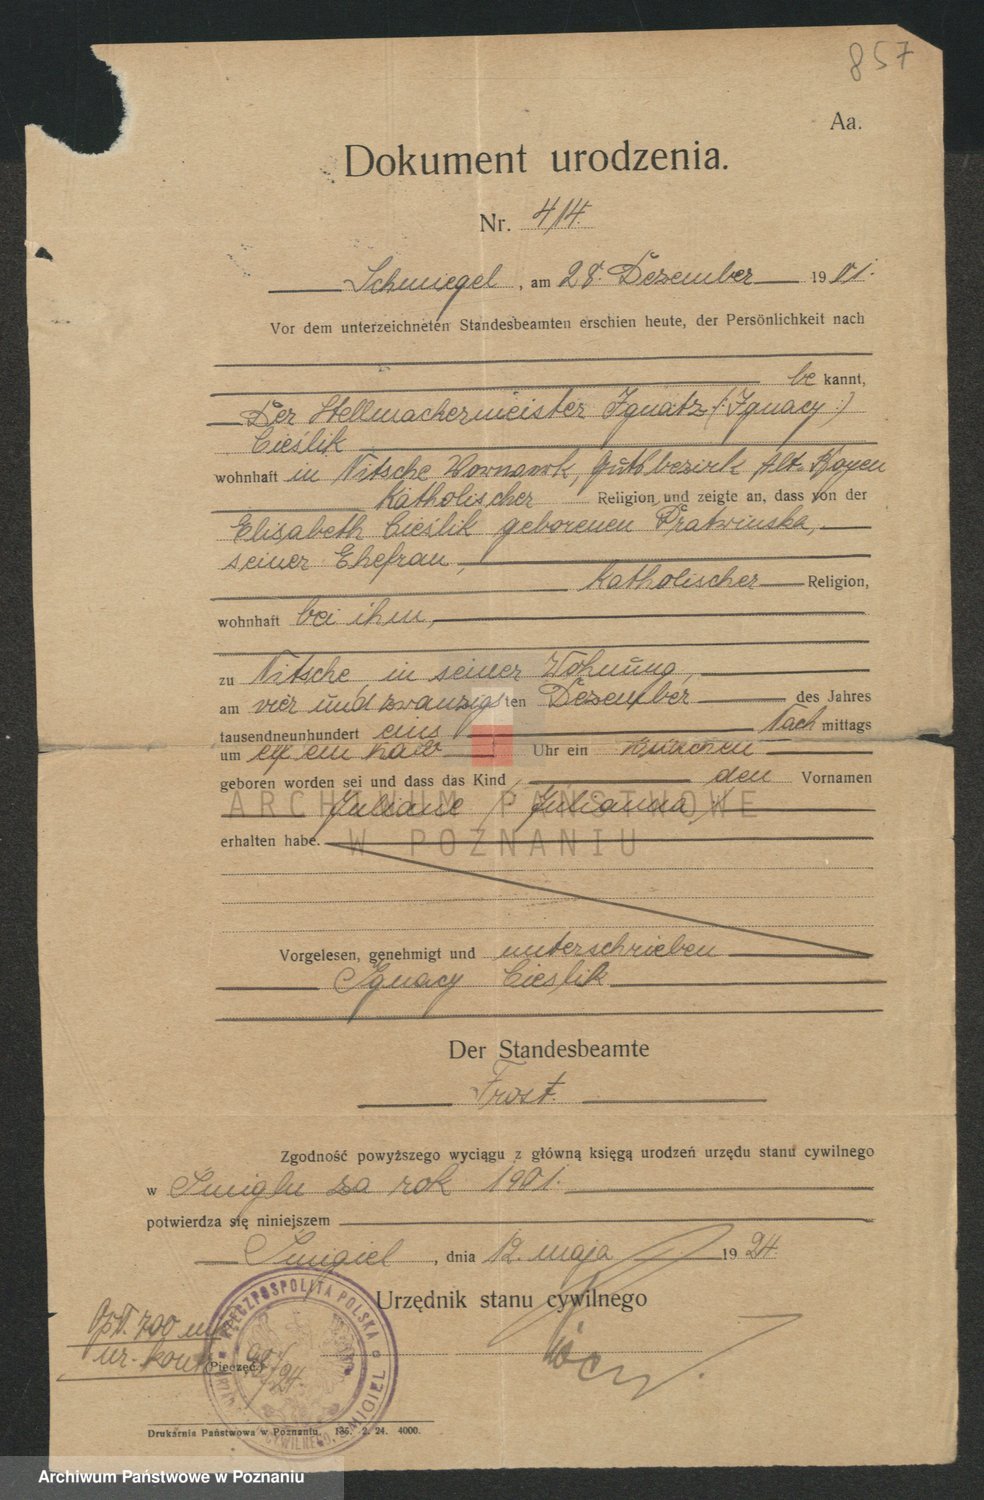 857
Aa.
Dokument urodzenia.
Nr. 414.
Schmiegel, am 28. Dezember 1901.
Vor dem unterzeichneten Standesbeamten erschien heute, der Persönlichkeit nach
be kannt,
Der Stellmachermeister Ignatz (: Ignacy :)
Cieślik
wohnhaft in Nitsche Vorwerk, Gutsbezirk Alt-
Katholischer Religion und zeigte an, dass von der
Elisabeth Cieślik geborenen Fratwinska,
seiner Ehefrau,
katholischer Religion,
wohnhaft bei ihm,
zu Nitsche in seiner Wohnung,
am vier und zwanzigsten Dezember des Jahres
tausendneunhundert eins Nach mittags
um Uhr ein
geboren worden sei und dass das Kind den Vornamen
Juliane (: Julianna :)
erhalten habe.
ARCHIWUM PAŃSTWOWE
W POZNANIU
Vorgelesen, genehmigt und unterschrieben
Ignacy Cieslik
Der Standesbeamte
Frost.
Zgodność powyższego wyciągu z główną księgą urodzeń urzędu stanu cywilnego
w Śmiglu za rok 1901.
potwierdza się niniejszem
Śmigiel, dnia 12. maja 1924.
Urzędnik stanu cywilnego
RZECZPOSPOLITA POLSKA
Opł. 700
nr.
(Pieczęć)
Drukarnia Państwowa w Poznaniu. 136. 2. 24. 4000.
Archiwum Państwowe w Poznaniu